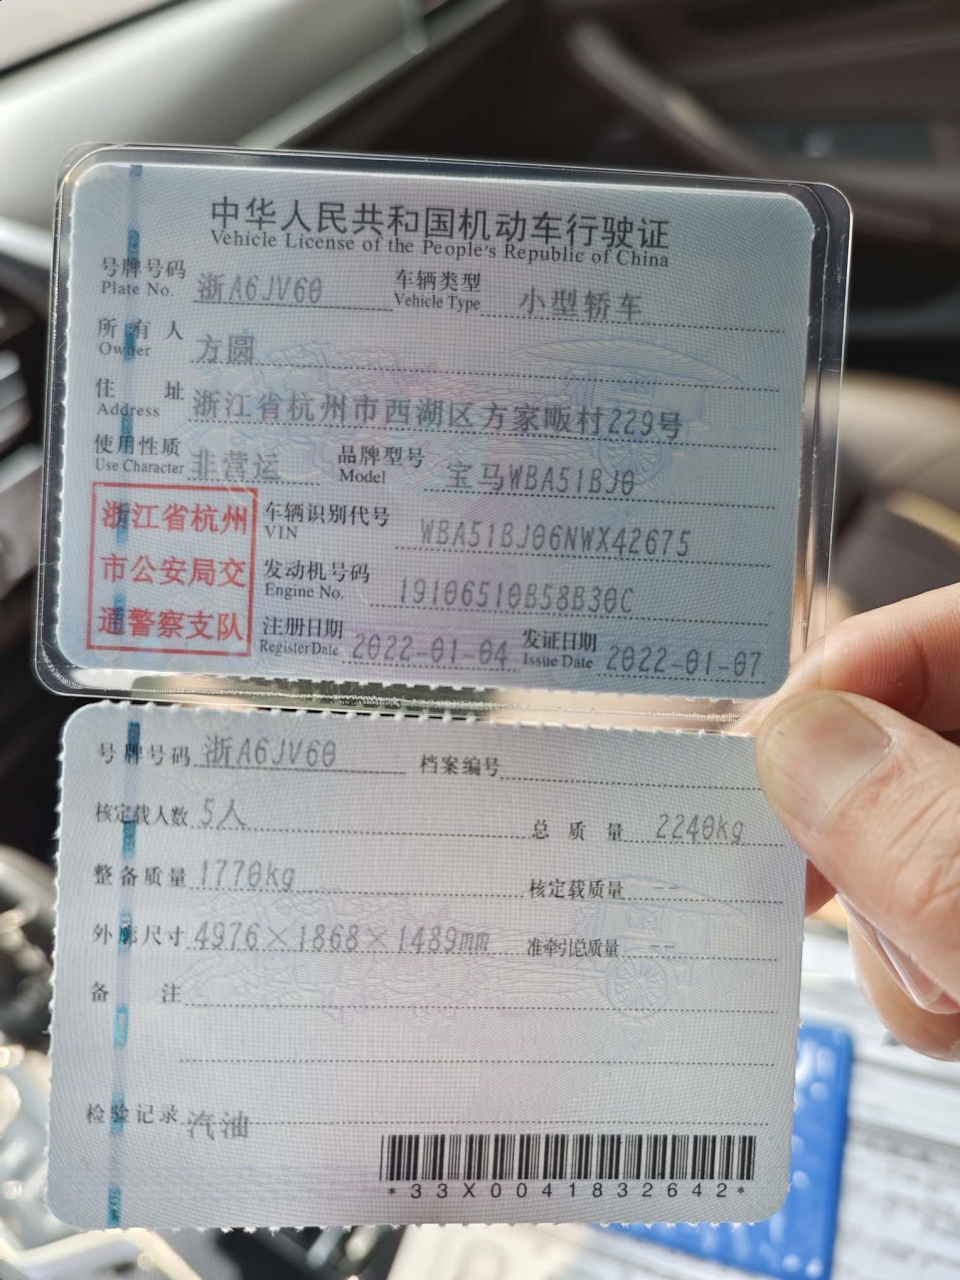 中华人民共和国机动车行驶证
Vehicle License of the People's Republic of China
号牌号码 浙A6JV60 车辆类型 小型轿车
Plate No. Vehicle Type
所有人 方圆
Owner
住址 浙江省杭州市西湖区方家畈村229号
Address
使用性质 非营运 品牌型号 宝马WBA51BJ0
Use Character Model
浙江省杭州
市公安局交
通警察支队
车辆识别代号 WBA51BJ06NWX42675
VIN
发动机号码 19106510B58B30C
Engine No.
注册日期 2022-01-04 发证日期 2022-01-07
Register Date Issue Date
号牌号码 浙A6JV60 档案编号
核定载人数 5人 总质量 2240kg
整备质量 1770kg 核定载质量 --
外廓尺寸 4976×1868×1489mm 准牵引总质量 --
备注
检验记录 汽油
*33X0041832642*